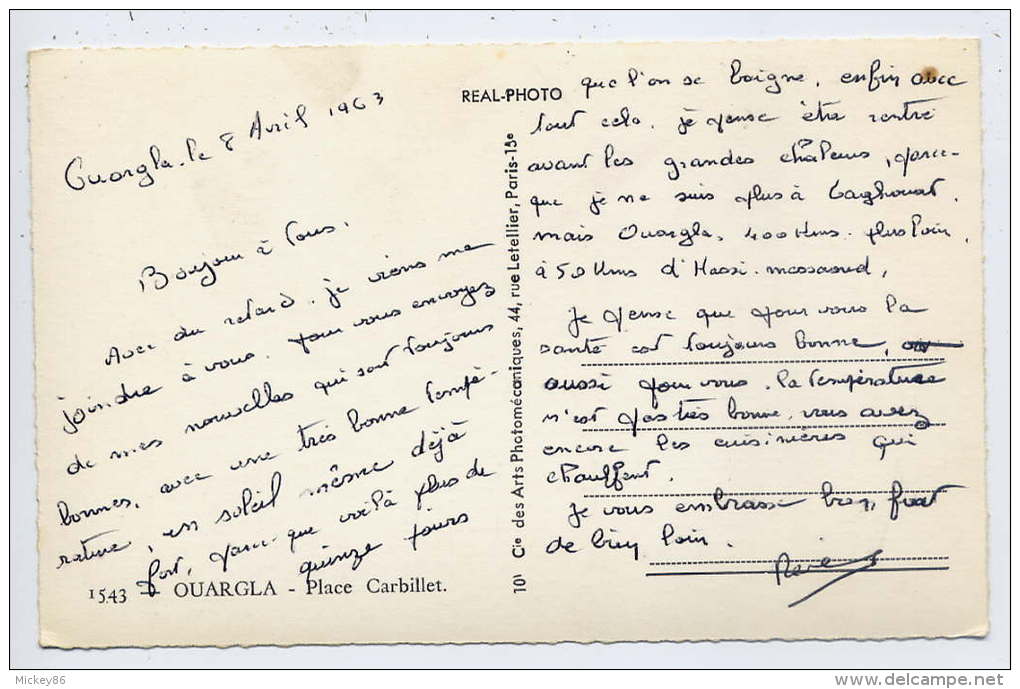 Ouargla. le 8 Avril 1963
Bonjour à tous.
Avec du retard. je viens me
joindre à vous. pour vous envoyez
de mes nouvelles qui sont toujours
bonnes, avec une très bonne tempé-
rature, un soleil même déjà
fort, parce-que voilà plus de
quinze jours
1543 - OUARGLA - Place Carbillet.
REAL-PHOTO
10) Cie des Arts Photomécaniques, 44, rue Letellier, Paris-15e
que l'on se baigne, enfin avec
tout cela, je pense être rentré
avant les grandes châleurs, parce-
que je ne suis plus à Laghouat.
mais Ouargla, 400 Kms. plus loin,
à 50 Kms d'Hassi-messaoud,
Je pense que pour vous la
santé est toujours bonne,
aussi pour vous. la température
n'est pas très bonne, vous avez
encore les cuisinières qui
chauffent.
Je vous embrasse bien fort
de bien loin.
René
Mickey86
www.delcampe.net